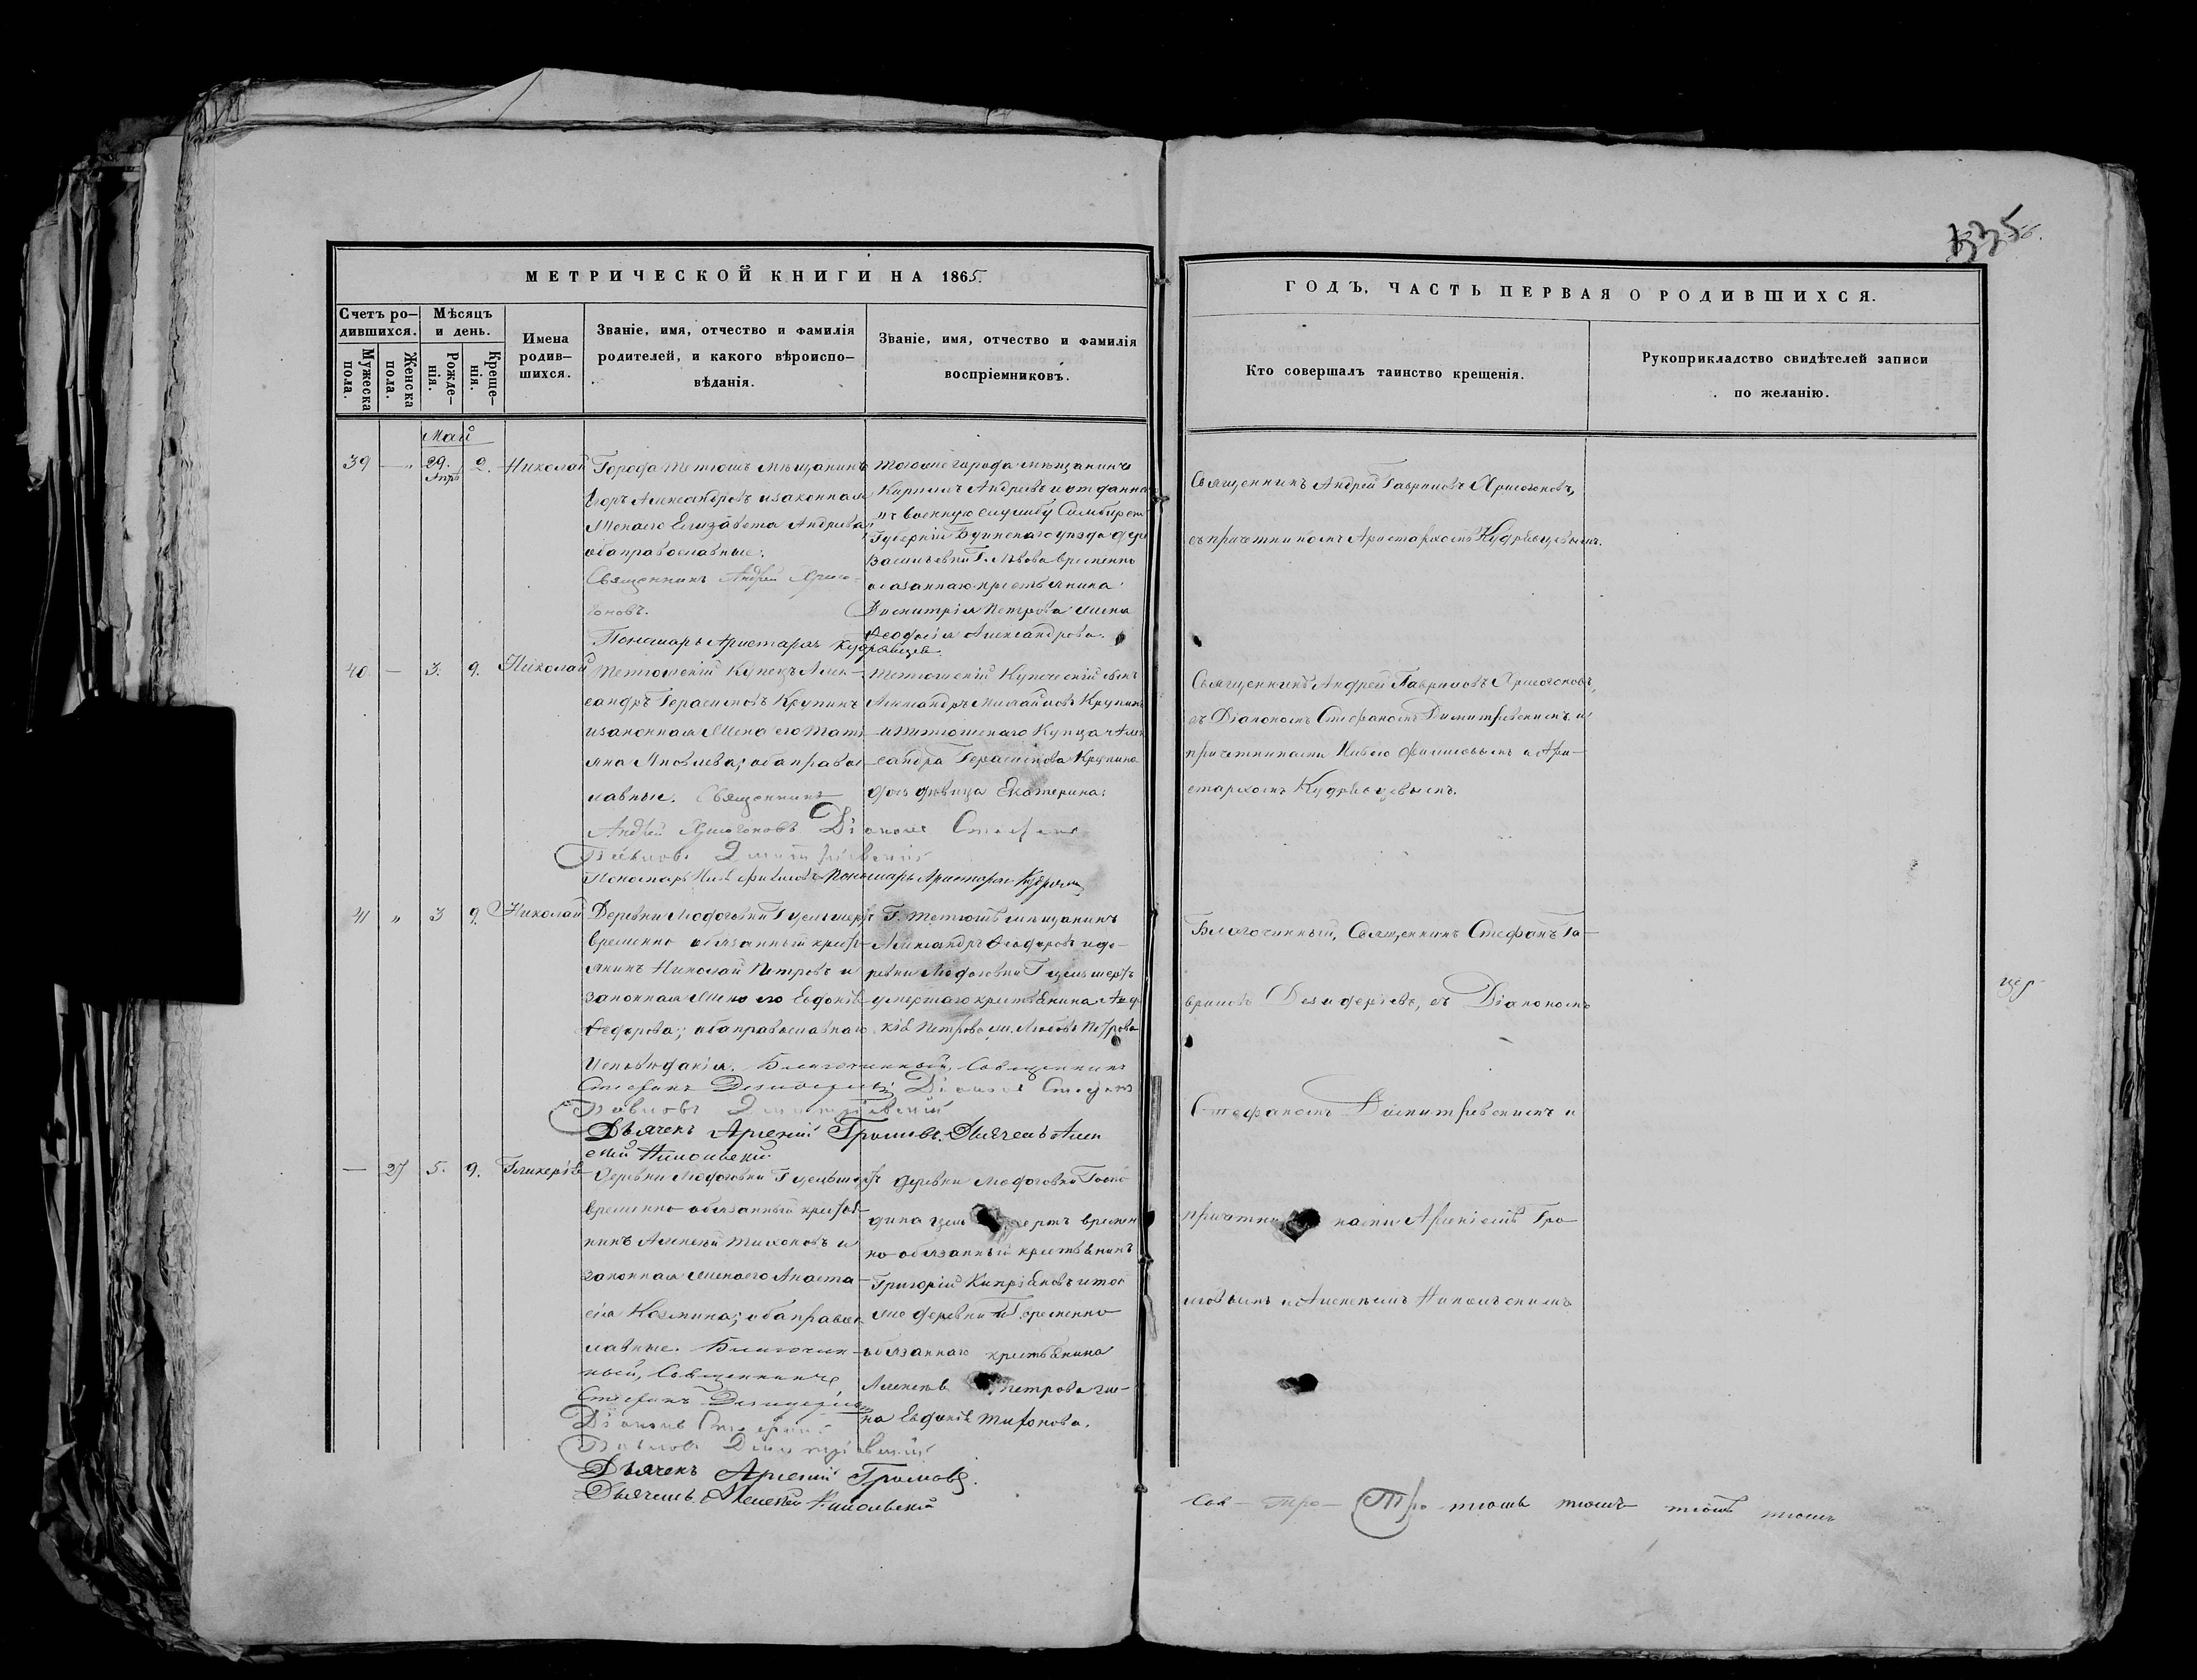 335
МЕТРИЧЕСКОЙ КНИГИ НА 1865.
ГОДЪ, ЧАСТЬ ПЕРВАЯ О РОДИВШИХСЯ.
Счетъ ро-
дившихся.
Мужеска
пола.
Женска
пола.
Мѣсяцъ
и день.
Рожде-
нія.
Креще-
нія.
Имена
родив-
шихся.
Званіе, имя, отчество и фамилія
родителей, и какого вѣроиспо-
вѣданія.
Званіе, имя, отчество и фамилія
воспріемниковъ.
Кто совершалъ таинство крещенія.
Рукоприкладство свидѣтелей записи
по желанію.
Май
39 — „ 29. Апр. 2. Николай
Города Тетюшъ мѣщанинъ
Егоръ Александровъ и законная
жена его Елизавета Андреева
оба православные.
Священникъ Андрей Хрисо-
гоновъ.
Пономарь Аристархъ Кудрявцев
тогоже города мѣщанинъ
Кириллъ Андреевъ и отданна
въ военную службу Симбирск
Губерніи Буинскаго уѣзда дер
Васильевки Г. Львова временно
обязаннаго крестьянина
Димитрія Петрова жена
Ѳеодосія Александрова.
Священникъ Андрей Гавриловъ Хрисогоновъ,
съ причетникомъ Аристархомъ Кудрявцевымъ.
40 — 3. 9. Николай
Тетюшскій Купецъ Алек-
сандръ Герасимовъ Крупинъ
и законная жена его Тать
яна Яковлева; оба правос
лавные. Священникъ
Андрей Хрисогоновъ Діаконъ Стефанъ
Павловъ Димитріевскій
Пономарь Нилъ Филиповъ Пономарь Аристархъ Кудрявц
Тетюшскій Купеческій сынъ
Александръ Михайловъ Крупинъ
и Тетюшскаго Купца Алек
сандра Герасимова Крупина
дочь дѣвица Екатерина.
Священникъ Андрей Гавриловъ Хрисогоновъ,
съ Діакономъ Стефаномъ Димитріевскимъ и
причетниками Ниломъ Филиповымъ и Ари-
стархомъ Кудрявцевымъ.
41 „ 3 9. Николай
Деревни Людоговки Г. Цельшертъ
временно обязанный кресть
янинъ Николай Петровъ и
законная жена его Евдокія
Ѳедорова; оба православнаго
Исповѣданія. Благочинный, Священникъ
Стефанъ Дезидерьевъ Діаконъ Стефанъ
Павловъ Димитріевскій
Дьячекъ Арсеній Громовъ. Дьячекъ Алек
сѣй Никольскій
Г. Тетюшъ мѣщанинъ
Александръ Ѳеодоровъ и де-
ревни Людоговки Г. Цельшертъ
умершаго крестьянина Авд
кія Петрова ж. Любовь Петрова
Благочинный, Священникъ Стефанъ Га-
вриловъ Дезидерьевъ, съ Діакономъ
Стефаномъ Димитріевскимъ и
— 27 5. 9. Гликерія
Деревни Людоговки Г. Цельшертъ
временно обязанный крестья
нинъ Алексѣй Тихоновъ и
законная жена его Анаста-
сія Козмина; оба правос
лавные. Благочин-
ный, Священникъ
Стефанъ Дезидерьевъ
Діаконъ Стефанъ
Павловъ Димитріевскій
Дьячекъ Арсеній Громовъ.
Дьячекъ Алексѣй Никольскій
деревни Людоговки Госпо
дина Цель ертъ времен
но обязанный крестьянинъ
Григорій Кипріановъ и той
же деревни временно
обязаннаго крестьянина
Алексѣя Петрова же-
на Евдокія Тихонова.
причетни ками Арсеніемъ Гро
мовымъ и Алексѣемъ Никольскимъ
цер
Сов — Тро — Тро тюшь тюшъ тюшъ тюшъ